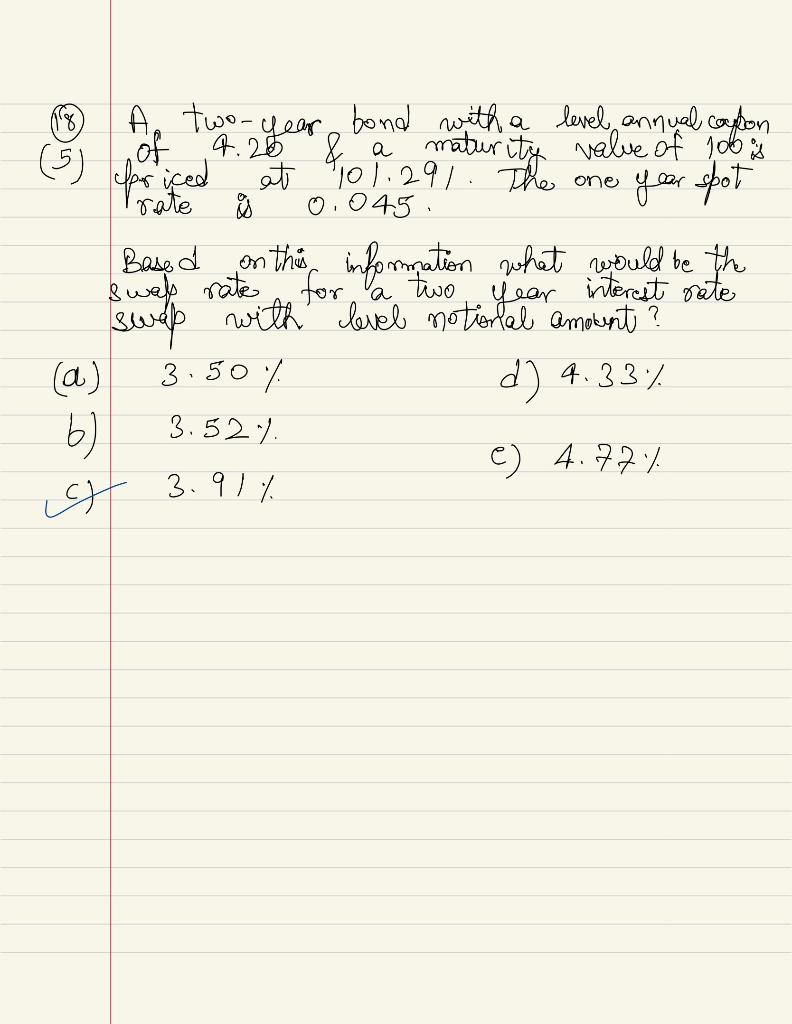 18 A two-year bond with a level annual coupon
(5) of 4.20 & a maturity value of 100 is
priced at 101.291. The one year spot
rate is 0.045.
Based on this information what would be the
swap rate for a two year interest rate
swap with level notional amount?
(a) 3.50% d) 4.33%
b) 3.52%
e) 4.77%
c) 3.91%